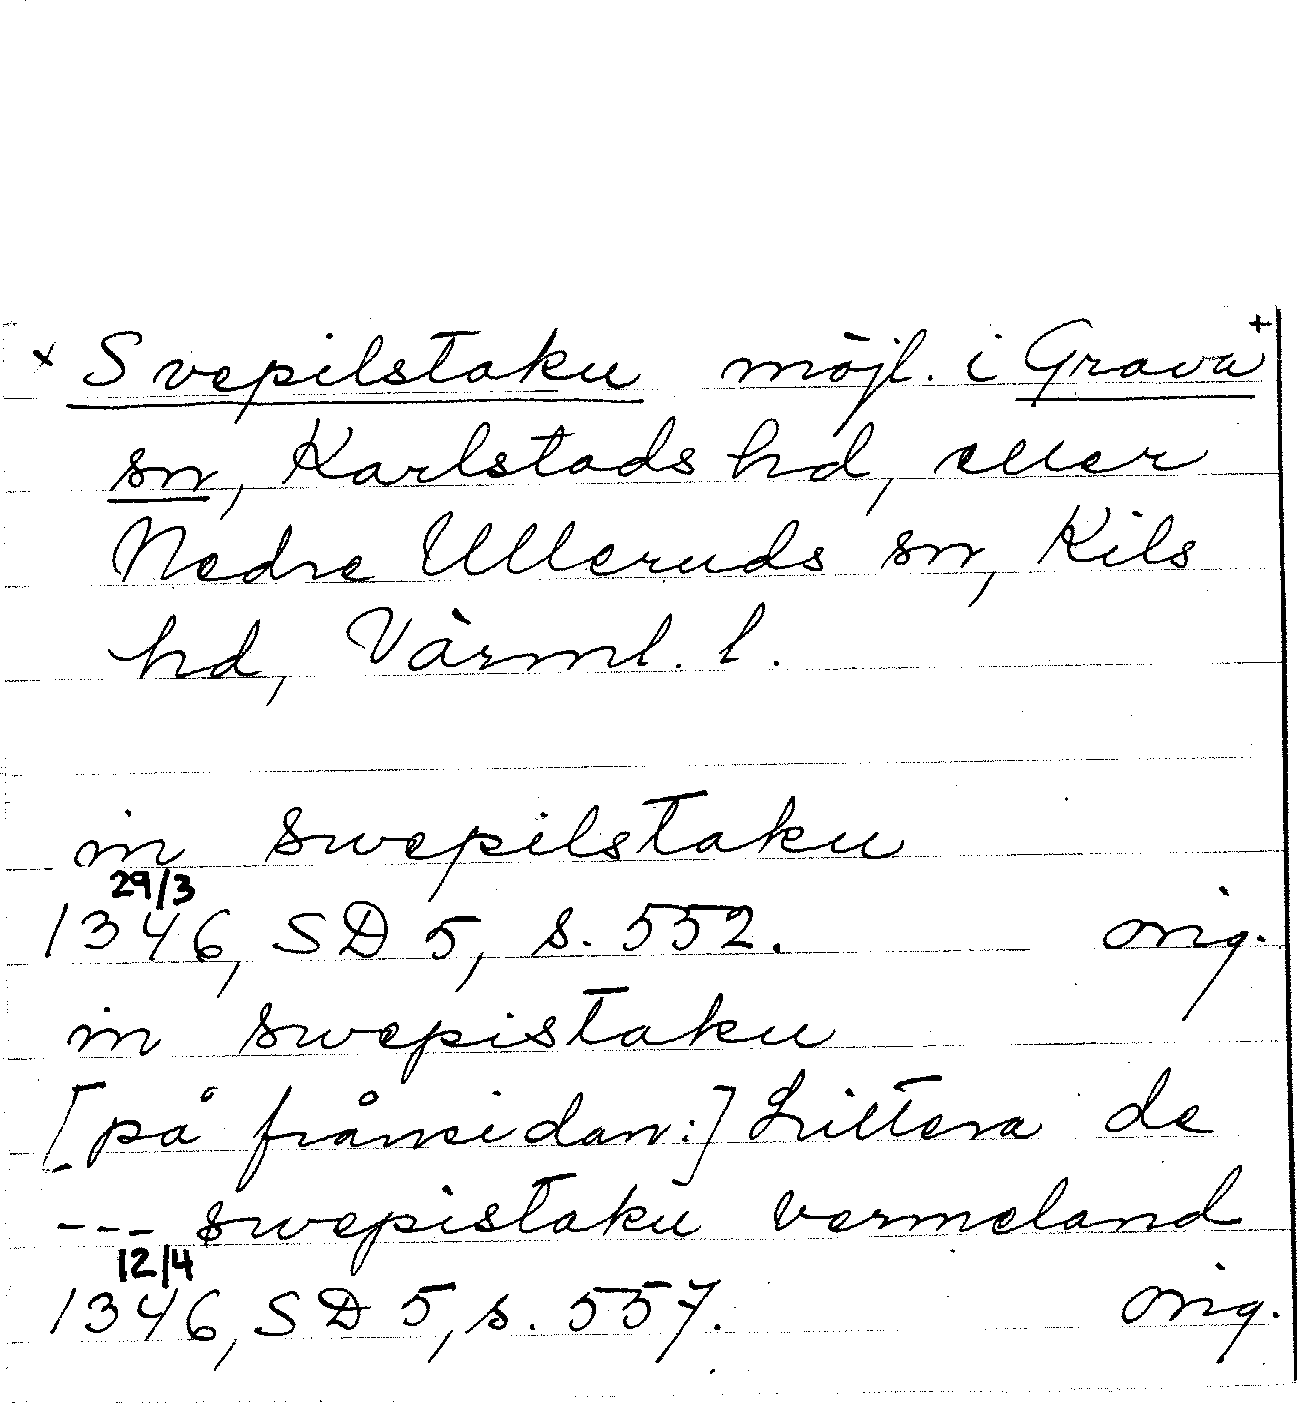 × Svepilstaku möjl. i Grava +
sn, Karlstads hd, eller
Nedre Ulleruds sn, Kils
hd, Värml. l.
in swepilstaku
29/3
1346, SD 5, s. 552. orig.
in swepistaku
[på frånsidan:] Littera de
--- swepistaku vermeland
12/4
1346, SD 5, s. 557. orig.